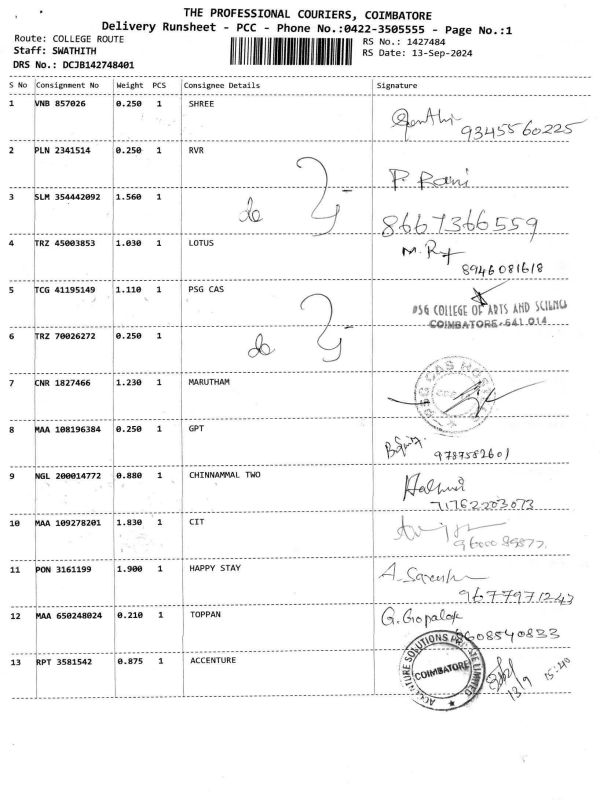 THE PROFESSIONAL COURIERS, COIMBATORE
Delivery Runsheet - PCC - Phone No.:0422-3505555 - Page No.:1
Route: COLLEGE ROUTE
RS No.: 1427484
Staff: SWATHITH
RS Date: 13-Sep-2024
DRS No.: DCJB142748401
S No Consignment No Weight PCS Consignee Details Signature
1 VNB 857026 0.250 1 SHREE
9345560225
2 PLN 2341514 0.250 1 RVR
P. Rani
3 SLM 354442092 1.560 1 do
8667366559
4 TRZ 45003853 1.030 1 LOTUS
8946081618
5 TCG 41195149 1.110 1 PSG CAS
PSG COLLEGE OF ARTS AND SCIENCE
COIMBATORE-641 014
6 TRZ 70026272 0.250 1 do
7 CNR 1827466 1.230 1 MARUTHAM
PSG CAS HOSTEL
8 MAA 108196384 0.250 1 GPT
9787582601
9 NGL 200014772 0.880 1 CHINNAMMAL TWO
10 MAA 109278201 1.830 1 CIT
11 PON 3161199 1.900 1 HAPPY STAY
12 MAA 650248024 0.210 1 TOPPAN
G. Gopal
13 RPT 3581542 0.875 1 ACCENTURE
ACCENTURE SOLUTIONS PRIVATE LIMITED
COIMBATORE
13/9 15:40